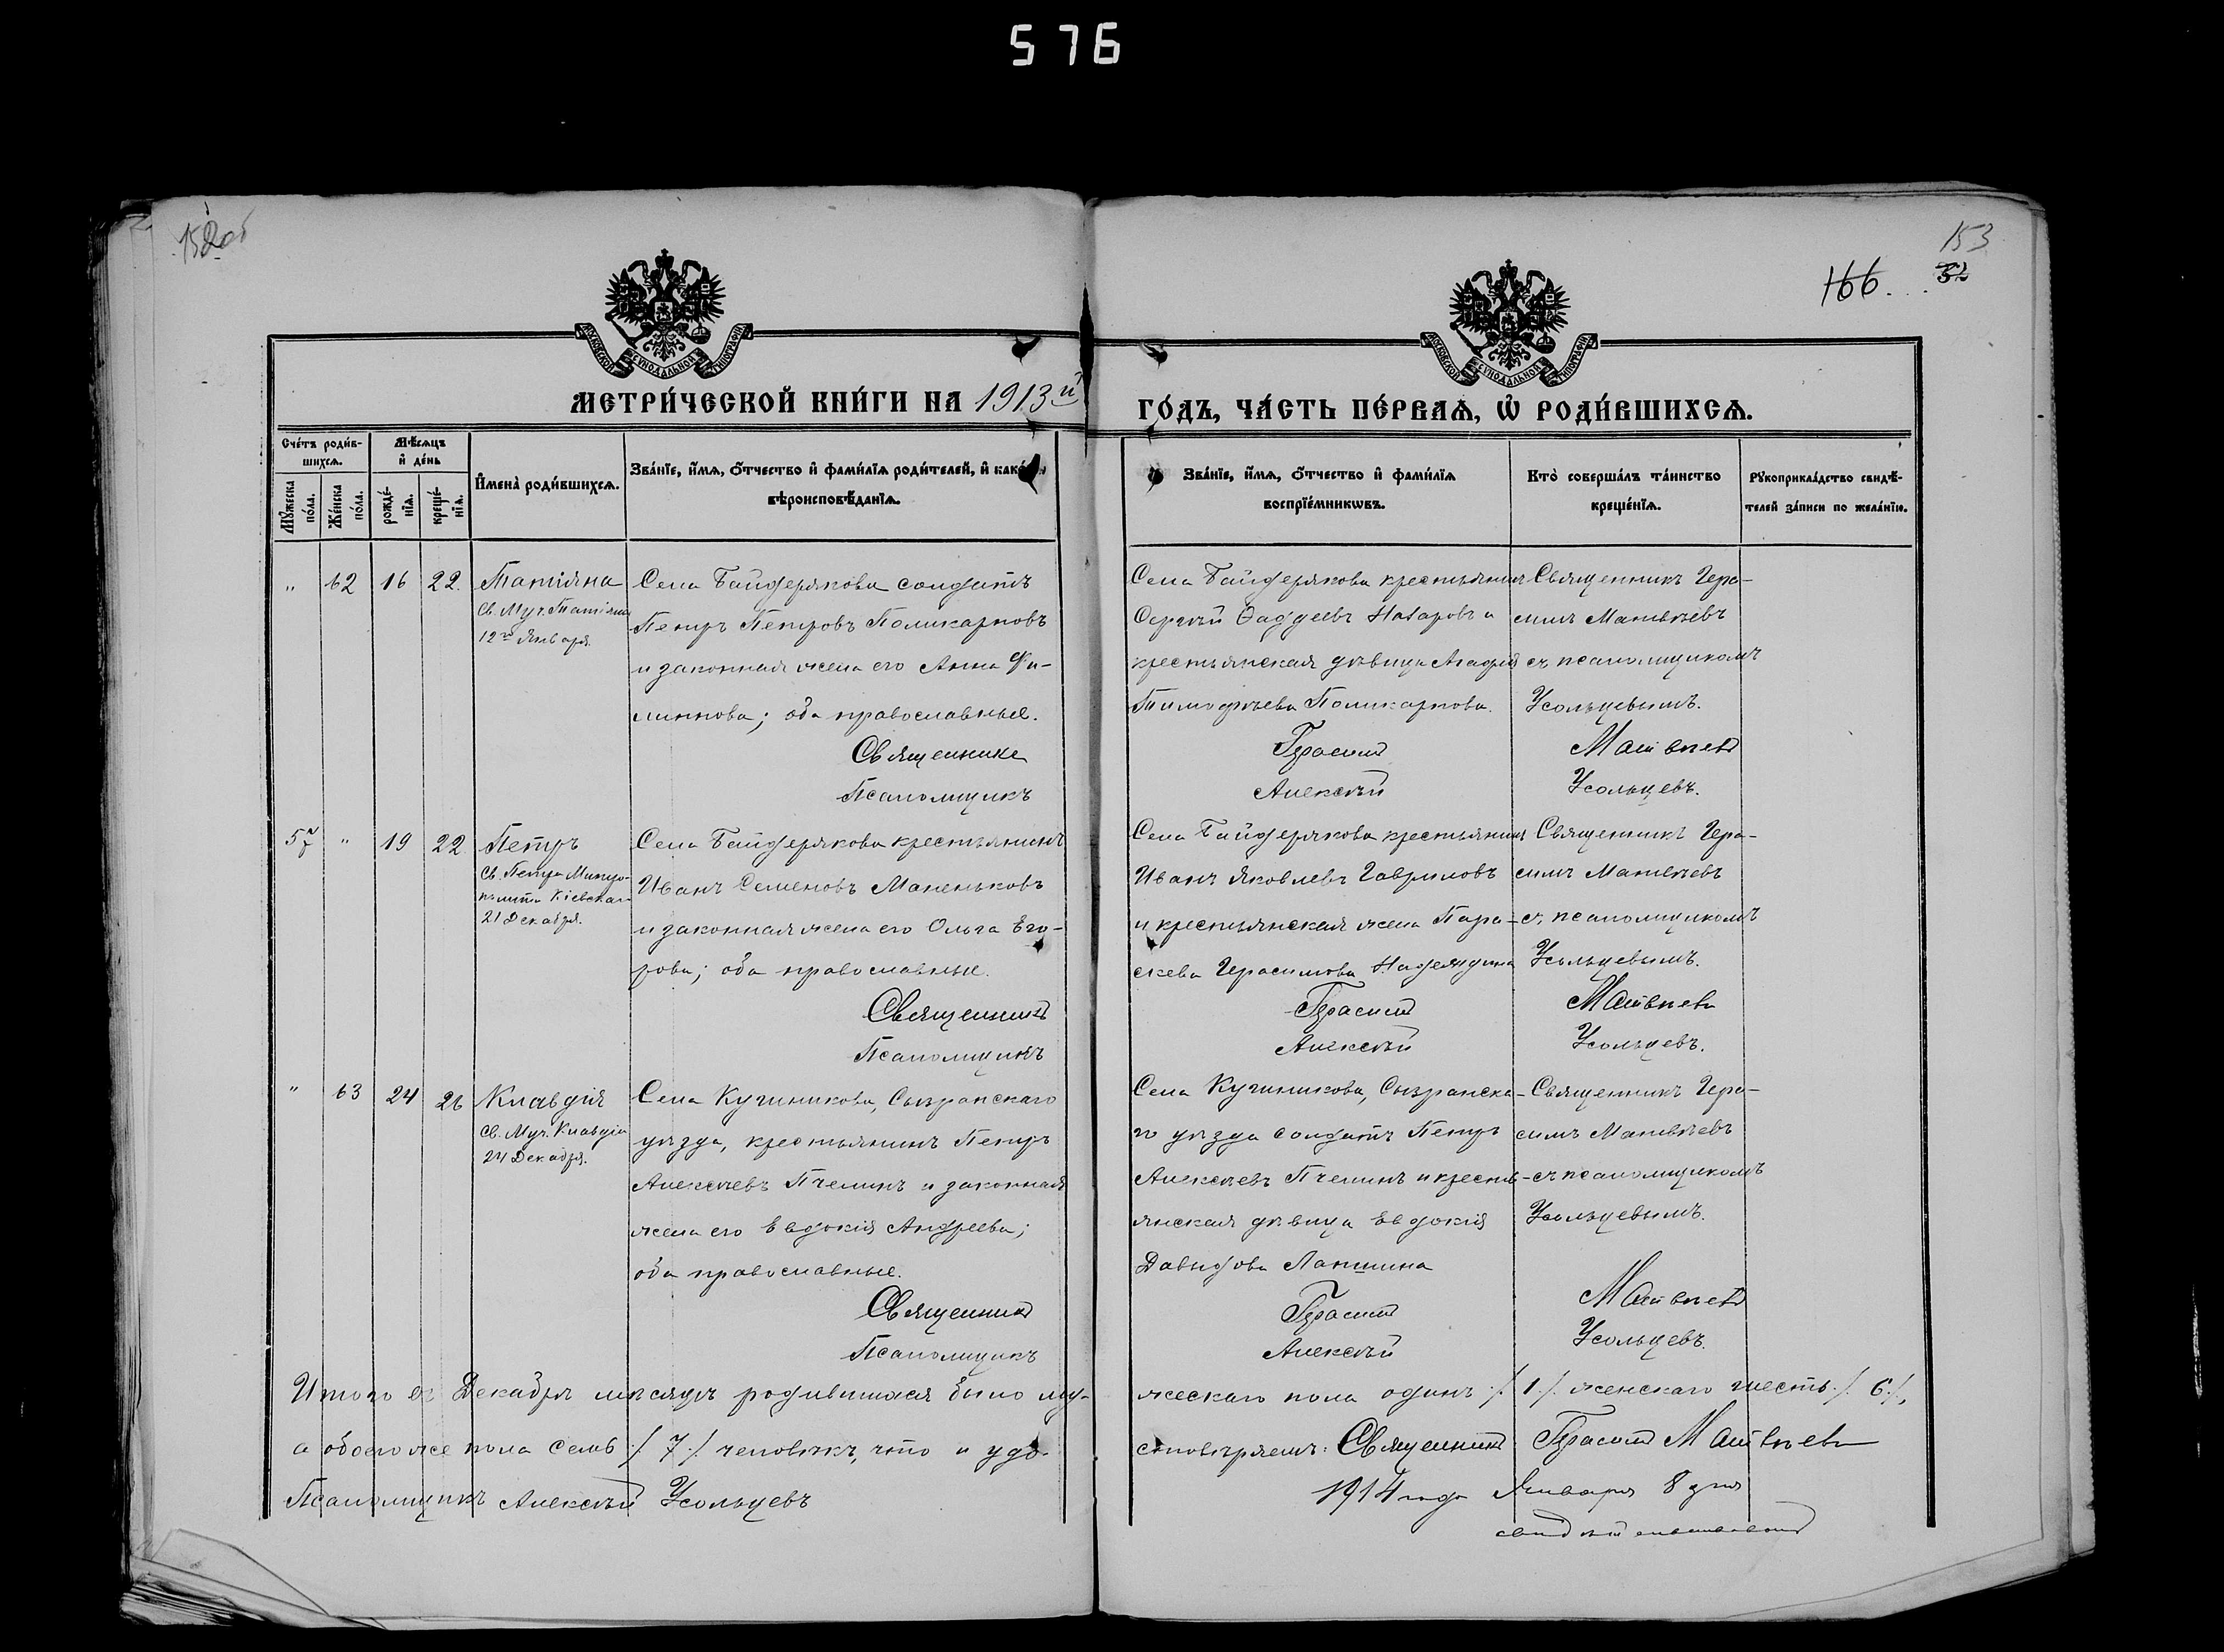 576
152об
153
52
166.
МОСКОВСКОЙ СѴНОДАЛЬНОЙ ТИПОГРАФІИ
МОСКОВСКОЙ СѴНОДАЛЬНОЙ ТИПОГРАФІИ
МЕТРИ́ЧЕСКОЙ КНИ́ГИ НА 1913й
ГО́ДЪ, ЧА́СТЬ ПЕ́РВАѦ, Ѽ РОДИ́ВШИХСѦ.
Сче́тъ роди́в-
шихсѧ.
Мѣ́сѧцъ
и҆ де́нь
Мꙋ́жеска по́ла.
Же́нска по́ла.
рожде́-
нїѧ.
креще́-
нїѧ.
И҆мена̀ роди́вшихсѧ.
Зва́нїе, и҆́мѧ, ѻ҆́тчество и҆ фами́лїѧ роди́телей, и҆ како́гѡ
вѣроисповѣ́данїѧ.
Зва́нїе, и҆́мѧ, ѻ҆́тчество и҆ фами́лїѧ
воспрїе́мникѡвъ.
Кто̀ соверша́лъ та́инство
креще́нїѧ.
Рꙋкоприкла́дство свидѣ́-
телей за́писи по жела́нїю.
" 62 16 22. Татіяна
Св. Муч. Татіяны
12го Января.
Села Байдерякова солдатъ
Петръ Петровъ Поликарповъ
и законная жена его Анна Фи-
липпова; оба православные.
Священникъ
Псаломщикъ
Села Байдерякова крестьянинъ
Сергѣй Ѳаддеевъ Назаровъ и
крестьянская дѣвица Агафія
Тимофѣева Поликарпова.
Герасимъ
Алексѣй
Священникъ Гера-
симъ Матвѣевъ
съ псаломщикомъ
Усольцевымъ.
Матвѣевъ
Усольцевъ.
57 " 19 22 Петръ
Св. Петра Митро-
полита Кіевскаго
21 Декабря.
Села Байдерякова крестьянинъ
Иванъ Семеновъ Маненьковъ
и законная жена его Ольга Его-
рова; оба православные.
Священникъ
Псаломщикъ
Села Байдерякова крестьянинъ
Иванъ Яковлевъ Гавриловъ
и крестьянская жена Пара-
скева Герасимова Надеждина
Герасимъ
Алексѣй
Священникъ Гера-
симъ Матвѣевъ
съ псаломщикомъ
Усольцевымъ.
Матвѣевъ
Усольцевъ.
" 63 24 26 Клавдія
Св. Муч. Клавдіи
24 Декабря.
Села Кучиникова, Сызранскаго
уѣзда, крестьянинъ Петръ
Алексѣевъ Пчелинъ и законная
жена его Евдокія Андреева;
оба православные.
Священникъ
Псаломщикъ
Села Кучиникова, Сызранска-
го уѣзда солдатъ Петръ
Алексѣевъ Пчелинъ и кресть-
янская дѣвица Евдокія
Давыдова Лапшина
Герасимъ
Алексѣй
Священникъ Гера-
симъ Матвѣевъ
съ псаломщикомъ
Усольцевымъ.
Матвѣевъ
Усольцевъ.
Итого въ Декабрѣ мѣсяцѣ родившихся было му-
жескаго пола одинъ /1/ женскаго шесть /6/,
а обоего же пола семь /7/ человѣкъ, что и удо-
стовѣряемъ: Священникъ Герасимъ Матвѣевъ
Псаломщикъ Алексѣй Усольцевъ
1914 года Января 8 дня